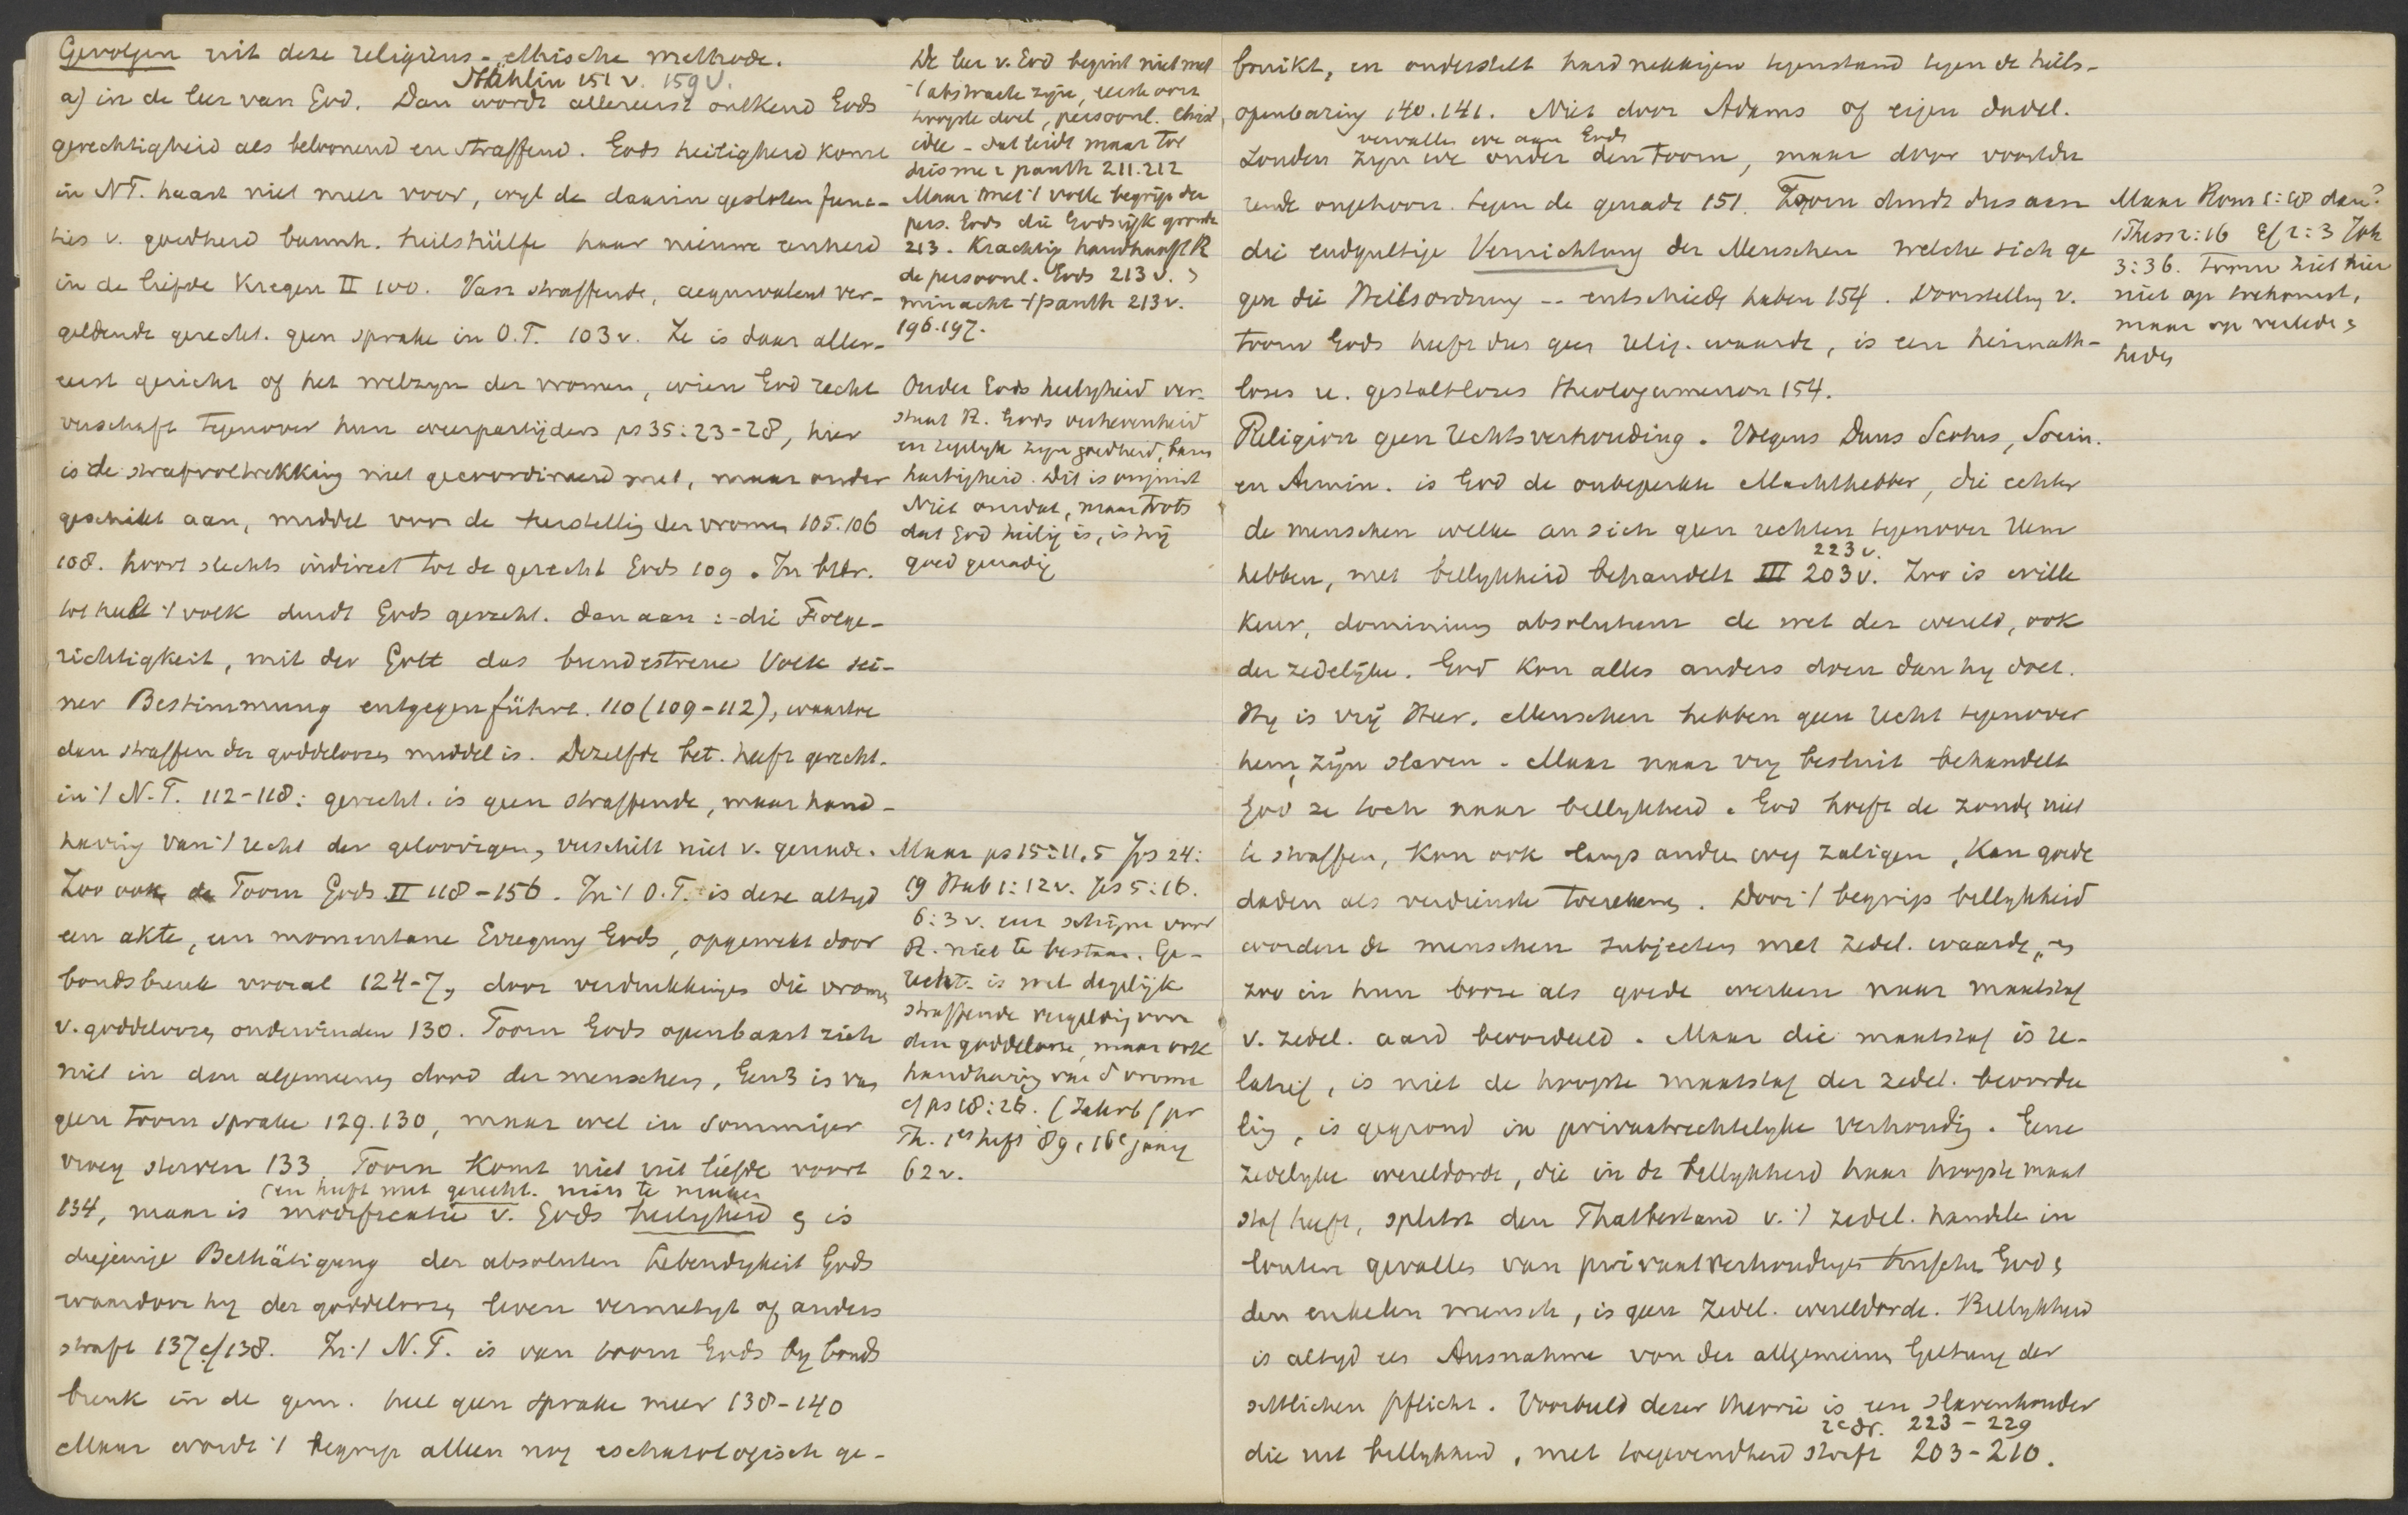 Gevolgen uit deze religieus-ethische methode.
Stählin 151 v. 159 v.
a) in de leer van God. Dan wordt allereerst ontkend Gods
gerechtigheid als beloonend en straffend. Gods heiligheid komt
in N.T. haast niet meer voor, wyl de daarin gesloten func-
ties v. goedheid barmh. heilshülfe haar nieuwe eenheid
in de liefde kregen II 100. Van straffende, aequivalent ver-
geldende gerecht. geen sprake in O.T. 103 v. Ze is daar aller-
eerst gericht op het welzyn der vromen, wien God recht
verschaft tegenover hun weerpartijders ps 35:23-28, hier
is de strafvoltrekking niet gecoordineerd met, maar onder
geschikt aan, middel voor de herstelling der vromen 105.106
108. hoort slechts indirect tot de gerecht Gods 109. In betr.
tot heel 't volk duidt Gods gerecht. dan aan: die Folge-
richtigkeit, mit der Gott das bundestreue Volk sei-
ner Bestimmung entgegenführt. 110 (109-112), waartoe
dan straffen der goddeloozen middel is. Dezelfde bet. heeft gerecht.
in 't N.T. 112-118: gerecht. is geen straffende, maar hand-
having van 't recht der geloovigen, verschilt niet v. genade.
Zoo ook de Toorn Gods II 118-156. In 't O.T. is deze altyd
een akte, een momentane Erregung Gods, opgewekt door
bondsbreuk vooral 124-7, door verdrukkingen die vromen
v. goddeloozen ondervinden 130. Toorn Gods openbaart zich
niet in den algemeenen dood der menschen, Gen 3 is van
geen toorn sprake 129.130, maar wel in sommiger
vroeg sterven 133. Toorn komt niet uit liefde voort
(en heeft met gerecht. niets te maken
134, maar is modificatie v. Gods heiligheid is
diejenige Bethätigung der absoluten Lebendigkeit Gods
waardoor hy der goddeloozen leven vernietigt of anders
straft 137 cf 138. In 't N.T. is van toorn Gods by bonds
breuk in de gem. heel geen sprake meer 138-140
Maar wordt 't begrip alleen nog eschatologisch ge-
De leer v. God begint niet met
't abstracte zyn, eerste oorz
hoogste doel, persoonl. Christ.
idee - dat leidt maar tot
deisme & panth 211.212
Maar met 't volle begrip der
pers. Gods die Godsrijk grondt
213. Krachtig handhaaft R
de persoonl. Gods 213 v.
minacht 't panth 213 v.
196.197.
Onder Gods heiligheid ver-
staat R. Gods verhevenheid
en tegelyk zyn goedheid, barm
hartigheid. Dit is onjuist
Niet omdat, maar trots
dat God heilig is, is hij
goed genadig
Maar ps 15:11,5 Jos 24:
19 Hab 1:12 v. Jes 5:16.
6:3 v. enz schijnt voor
R. niet te bestaan. Ge-
recht. is wel degelijk
straffende vergelding voor
den goddelooze, maar ook
handhaving van d vrome
cf ps 18:26. (Jahrb f pr
Th. 1es heft '89, 16e Jahrg
62 v.
bruikt, en onderstelt hardnekkigen tegenstand tegen de heils-
openbaring 140.141. Niet door Adams of eigen dadel.
vervallen we aan Gods
zonden zyn we onder den toorn, maar door voortdu
rende ongehoorz. tegen de genade 151. Toorn duidt dus aan
die endgultige Vernichtung der Menschen welche sich ge
gen die Heilsordnung -- entschieden haben 154. Voorstelling v.
toorn Gods heeft dus geen relig. waarde, is een heimath-
loses u. gestaltloses Theologumenon 154.
Maar Rom 1:18 dan?
1 Thess 2:16 Ef 2:3 Joh
3:36. Toorn ziet hier
niet op toekomst,
maar op verleden
heden
Religion geen rechtsverhouding. Volgens Duns Scotus, Socin.
en Armin. is God de onbeperkte Machthebber, die echter
de menschen welke an sich geen rechten tegenover Hem
223 v.
hebben, met billykheid behandelt III 203 v. Zoo is wille
keur, dominium absolutum de wet der wereld, ook
der zedelijke. God kon alles anders doen dan hy doet.
Hy is vrij Heer. Menschen hebben geen recht tegenover
hem, zijn slaven. Maar naar vry besluit behandelt
God ze toch naar billykheid. God hoeft de zonde niet
te straffen, kon ook langs andere weg zaligen, kan goede
daden als verdienste toerekenen. Door 't begrip billykheid
worden de menschen subjecten met zedel. waarde, en
zoo in hun booze als goede werken naar maatstaf
v. zedel. aard beoordeeld. Maar die maatstaf is re-
latief, is niet de hoogste maatstaf der zedel. beoorde
ling, is gegrond in privaatrechtelyke verhouding. Eene
zedelyke wereldorde, die in de billykheid haar hoogste maat
staf heeft, splitst den Thatbestand v. 't zedel. handelen in
louter gevallen van privaatverhoudingen tusschen God &
den enkelen mensch, is geen zedel. wereldorde. Billykheid
is altyd een Ausnahme von der allgemeinen Geltung der
sittlichen pflicht. Voorbeeld dezer theorie is een slavenhouder
2e dr. 223-229
die met billykheid, met toegevendheid straft 203-210.